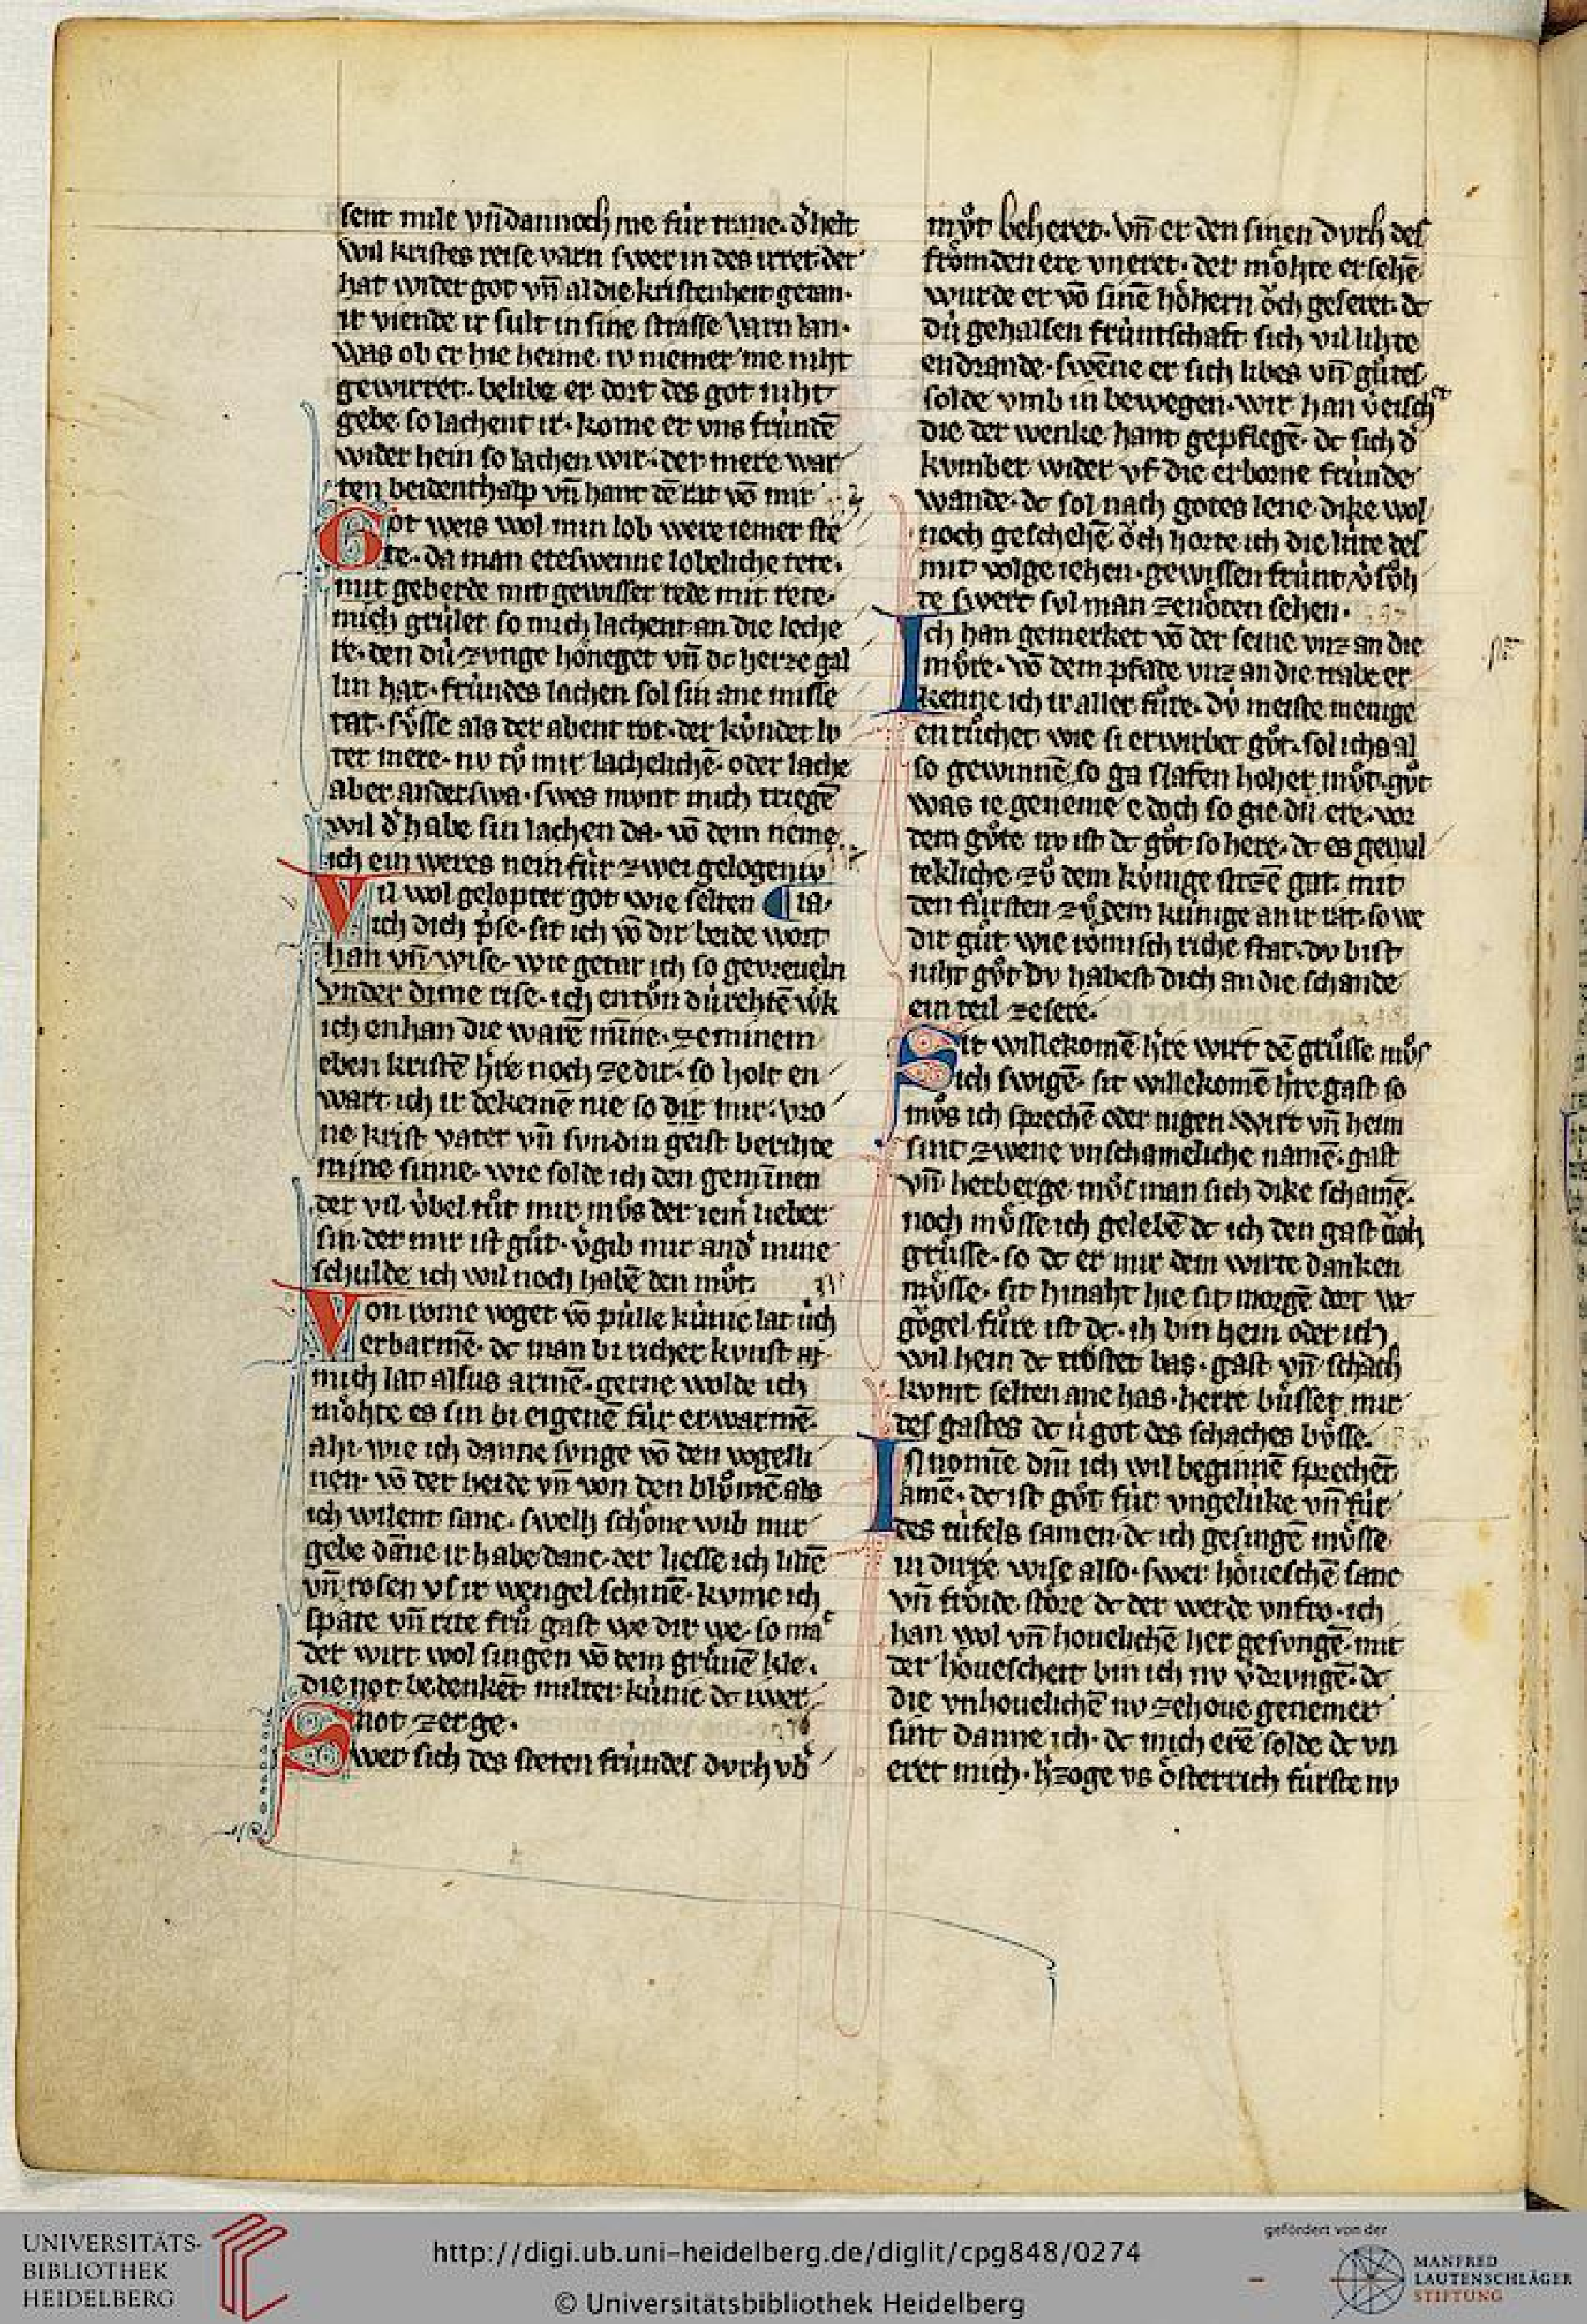 sent mile vn̄ dannoch me für trane. d͛ helt
wil kristes reise varn swer in des irret. der
hat wider got vn̄ al die kristenheit getan.
ir viende ir sult in sine strasse varn lan.
was ob er hie heime. iv niemer me niht
gewirret. belibe er dort des got niht
gebe. so lachent ir. kome er vns fründē
wider hein so lachen wir. der mere war
ten beidenthalp vn̄ hant dē rat vō mir
Got weis wol min lob were iemer ste
te. da man eteswenne lobeliche tete.
mit geberde mit gewisser rede mit rete.
mich grület so mich lachent an die leche
re. den dú zvnge honeget vn̄ dc herze gal
lin hat. fründes lachen sol sin ane misse
tat. sv̊sse als der abent rot. der kündet lv
ter mere. nv tv̊ mir lachelichē. oder lache
aber anderswa. swes mvnt mich triegē
wil d͛ habe sin lachen da. vō dem neme
ich ein weres nein für zwei gelogenv
Vil wol gelopter got wie selten ia.
ich dich p͛se. sit ich vō dir beide wort
han vn̄ wise. wie getar ich so gevreveln
vnder dime rise. ich entv̊n dú rehtē w͛k
ich enhan die warē mīne. ze minem
eben kristē h͛re noch ze dir. so holt en
wart ich ir dekeinē nie so dir mir. vro
ne krist vater vn̄ svn din geist berihte
mine sinne. wie solde ich den gemīnen
der vil v̇bel tůt mir mv̊s der iem͛ lieber
sin der mir ist gůt. v͛gib mir and͛ mine
schulde ich wil noch habē den mv̊t.
Von rome voget vō pülle künic lat úch
erbarmē. dc man bi richer kvnst
mich lat alsus armē. gerne wolde ich
möhte es sin bi eigenē für erwarmē.
ahi wie ich danne svnge vō den vogelli
nen. vō der heide vn̄ von den blv̊mē als
ich wilent sanc. swelh schöne wib mir
gebe dāne ir habedanc. der liesse ich lilē
vn̄ rosen vs ir wengel schinē. kvme ich
spate vn̄ rite frů gast we dir we. so mac
der wirt wol singen vō dem grünē kle.
die not bedenkēt milter künic dc iwer
not zerge.
Swer sich des steten fründes dvrh v̇b͛
mv̊t beheret. vn̄ er den sinen dvrh des
frömden ere vneret. der möhte ersehē
wurde er vō sinē höhern öch geseret. dc
dú gehalsen früntschaft sich vil lihte
endrande. swēne er sich libes vn̄ gůtes
solde vmb in bewegen. wir han v͛eischet
die der wenke hant gepflegē. dc sich d͛
kvmber wider vf die erborne fründe
wande. dc sol nach gotes lene dike wol
noch geschehē. öch horte ich die lúte des
mit volge iehen. gewissen frúnt v͛sv̊h
te swert svl man ze nöten sehen.
Ich han gemerket vō der seine vnz an die
mv̊re. vō dem pfade vnz an die trabe er
kenne ich ir aller fůre. dú meiste menige
enrůchet wie si erwirbet gůt. sol ichs al
so gewinnē so ga slafen hoher mv̊t. gůt
was ie geneme e doch so gie dú ere. vor
dem gůte nv ist dc gůt so here. dc es gewal
tekliche zů dem künige sitzē gat. mit
den fürsten zů dem künige an ir rat. so we
dir gůt wie römisch riche stat. dv bist
niht gůt dv habest dich an die schande
ein teil ze sere.
Sit willekomē h͛re wirt dē grůsse mv̊s
ich swigē. sit willekomē h͛re gast so
mv̊s ich sprechē oder nigen. wirt vn̄ heim
sint zwene vnschameliche namē. gast
vn̄ herberge mv̊s man sich dike schamē.
noch mv̊sse ich gelebē dc ich den gast öch
grůsse. so dc er mir dem wirte danken
mv̊sse. sit hinaht hie sit morgē dort we
gögelfůre ist dc. ih bin hein oder ich
wil hein dc tröstet bas. gast vn̄ schach
kvmt selten ane has. herre bůsset mir
des gastes dc ú got des schaches bůsse.
In nomīe dm̄ ich wil beginnē sprechēt
amē. dc ist gůt für vngelüke vn̄ für
des túfels samen. dc ich gesingē mv̊sse
in dirre wise also. swer höueschē sanc
vn̄ fröide störe dc der werde vnfro. ich
han wol vn̄ houelichē her gesvngē. mit
der höuescheit bin ich nv v͛drvngē. dc
die vnhouelichē nv ze houe genemer
sint danne ich. dc mich erē solde dc vn
eret mich. h͛zoge vs österrich fürste nv
UNIVERSITÄTS-
BIBLIOTHEK
HEIDELBERG
http://digi.ub.uni-heidelberg.de/diglit/cpg848/0274
© Universitätsbibliothek Heidelberg
gefördert von der
MANFRED
LAUTENSCHLÄGER
STIFTUNG